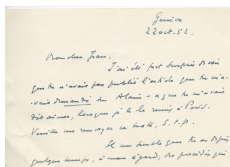 Genève
22 oct. 52.
Mon cher Jean,
J'ai été fort surpris de voir
que tu n'avais pas publié l'article que tu m'a-
vais demandé sur Alain – et que tu m'avais
dit aimer, lorsque je te le remis à Paris.
Veuille me renvoyer ce texte, s.t.p.
Il me semble que tu as depuis
quelque temps, à mon égard, des procédés qui